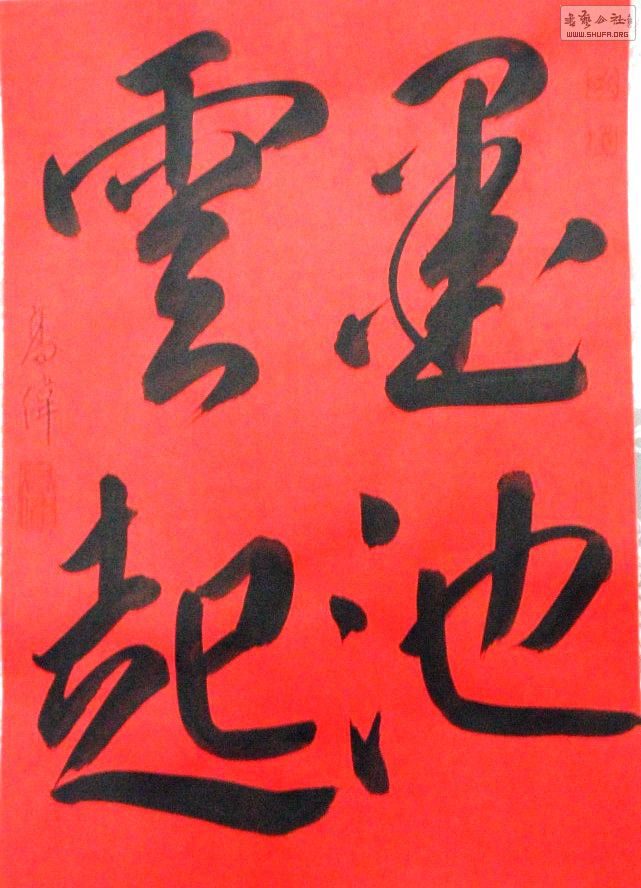 墨池
雲起
書藝公社
WWW.SHUFA.ORG